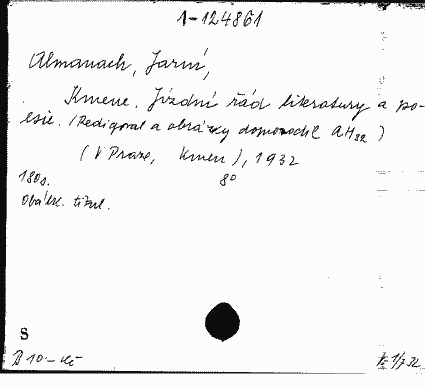 1-124861
Almanach, Jarní,
Kmene. Jízdní řád literatury a po-
esie. (Redigoval a obrázky doprovodil
(V Praze, Kmen), 1932
180 s. 8°
Obálk. titul.
S
B 10.- Kč